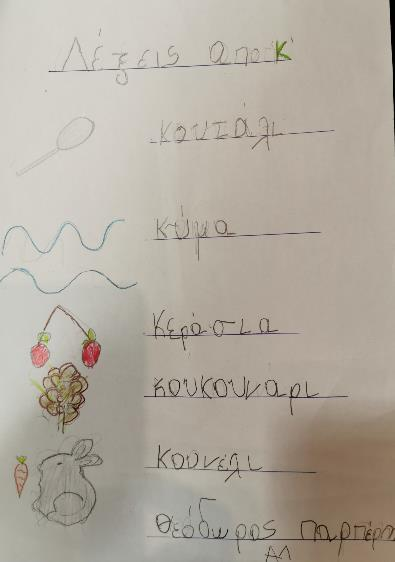 Λέξεις από Κ
κουτάλι
κύμα
κεράσια
κουκουνάρι
κουνέλι
Θεόδωρος
Α1